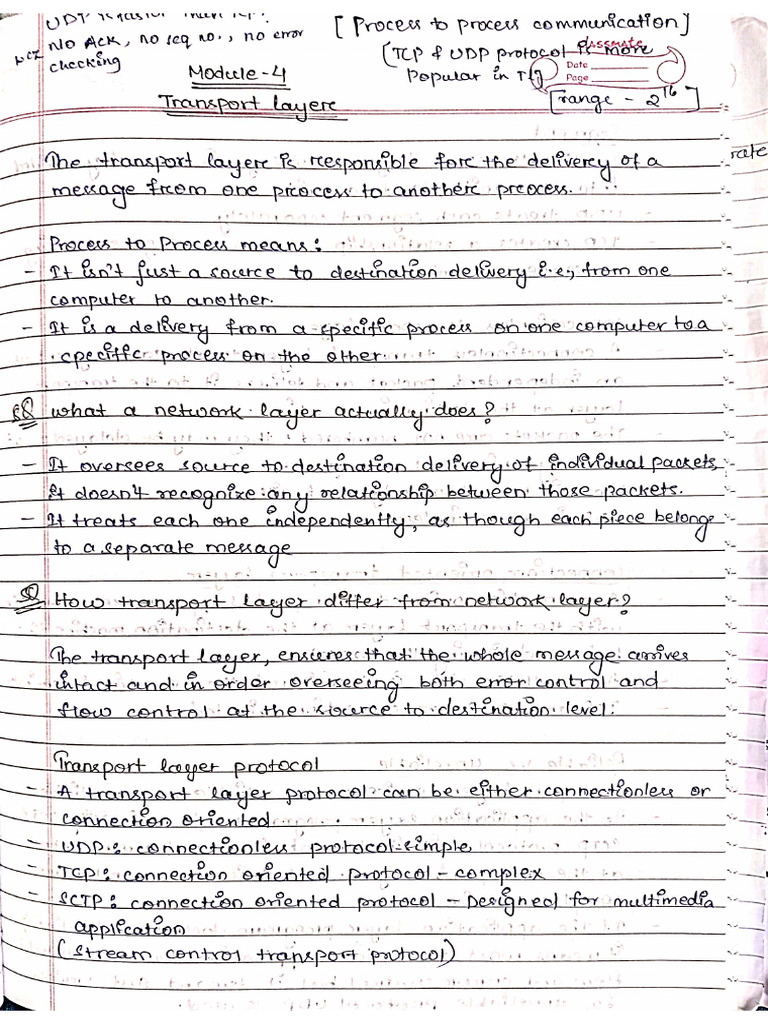 UDP is faster than TCP?
No Ack, no seq no., no error
checking
[Process to process communication]
(TCP & UDP protocol is more
Popular in T/L)
classmate
Date
Page
[range - 2^16]
Module-4
Transport layere
rate
The transport layere is responsible fore the delivery of a
message from one process to anothere process.
Process to Process means:
- It isn't just a source to destination delivery i.e., from one
computer to another.
- It is a delivery from a specific process on one computer to a
specific process on the other.
Q what a network layer actually does?
- It oversees source to destination delivery of individual packets
it doesn't recognize any relationship between those packets.
- It treats each one independently, as though each piece belongs
to a separate message
Q How transport Layer differ from network layer?
The transport layer, ensures that the whole message arrives
intact and in order overseeing both error control and
flow control at the source to destination level.
Transport layer protocol
- A transport layer protocol can be either connectionless or
connection oriented.
- UDP : connectionless protocol-simple
- TCP : connection oriented protocol - complex
- SCTP : connection oriented protocol - Designed for multimedia
application
(stream control transport protocol)